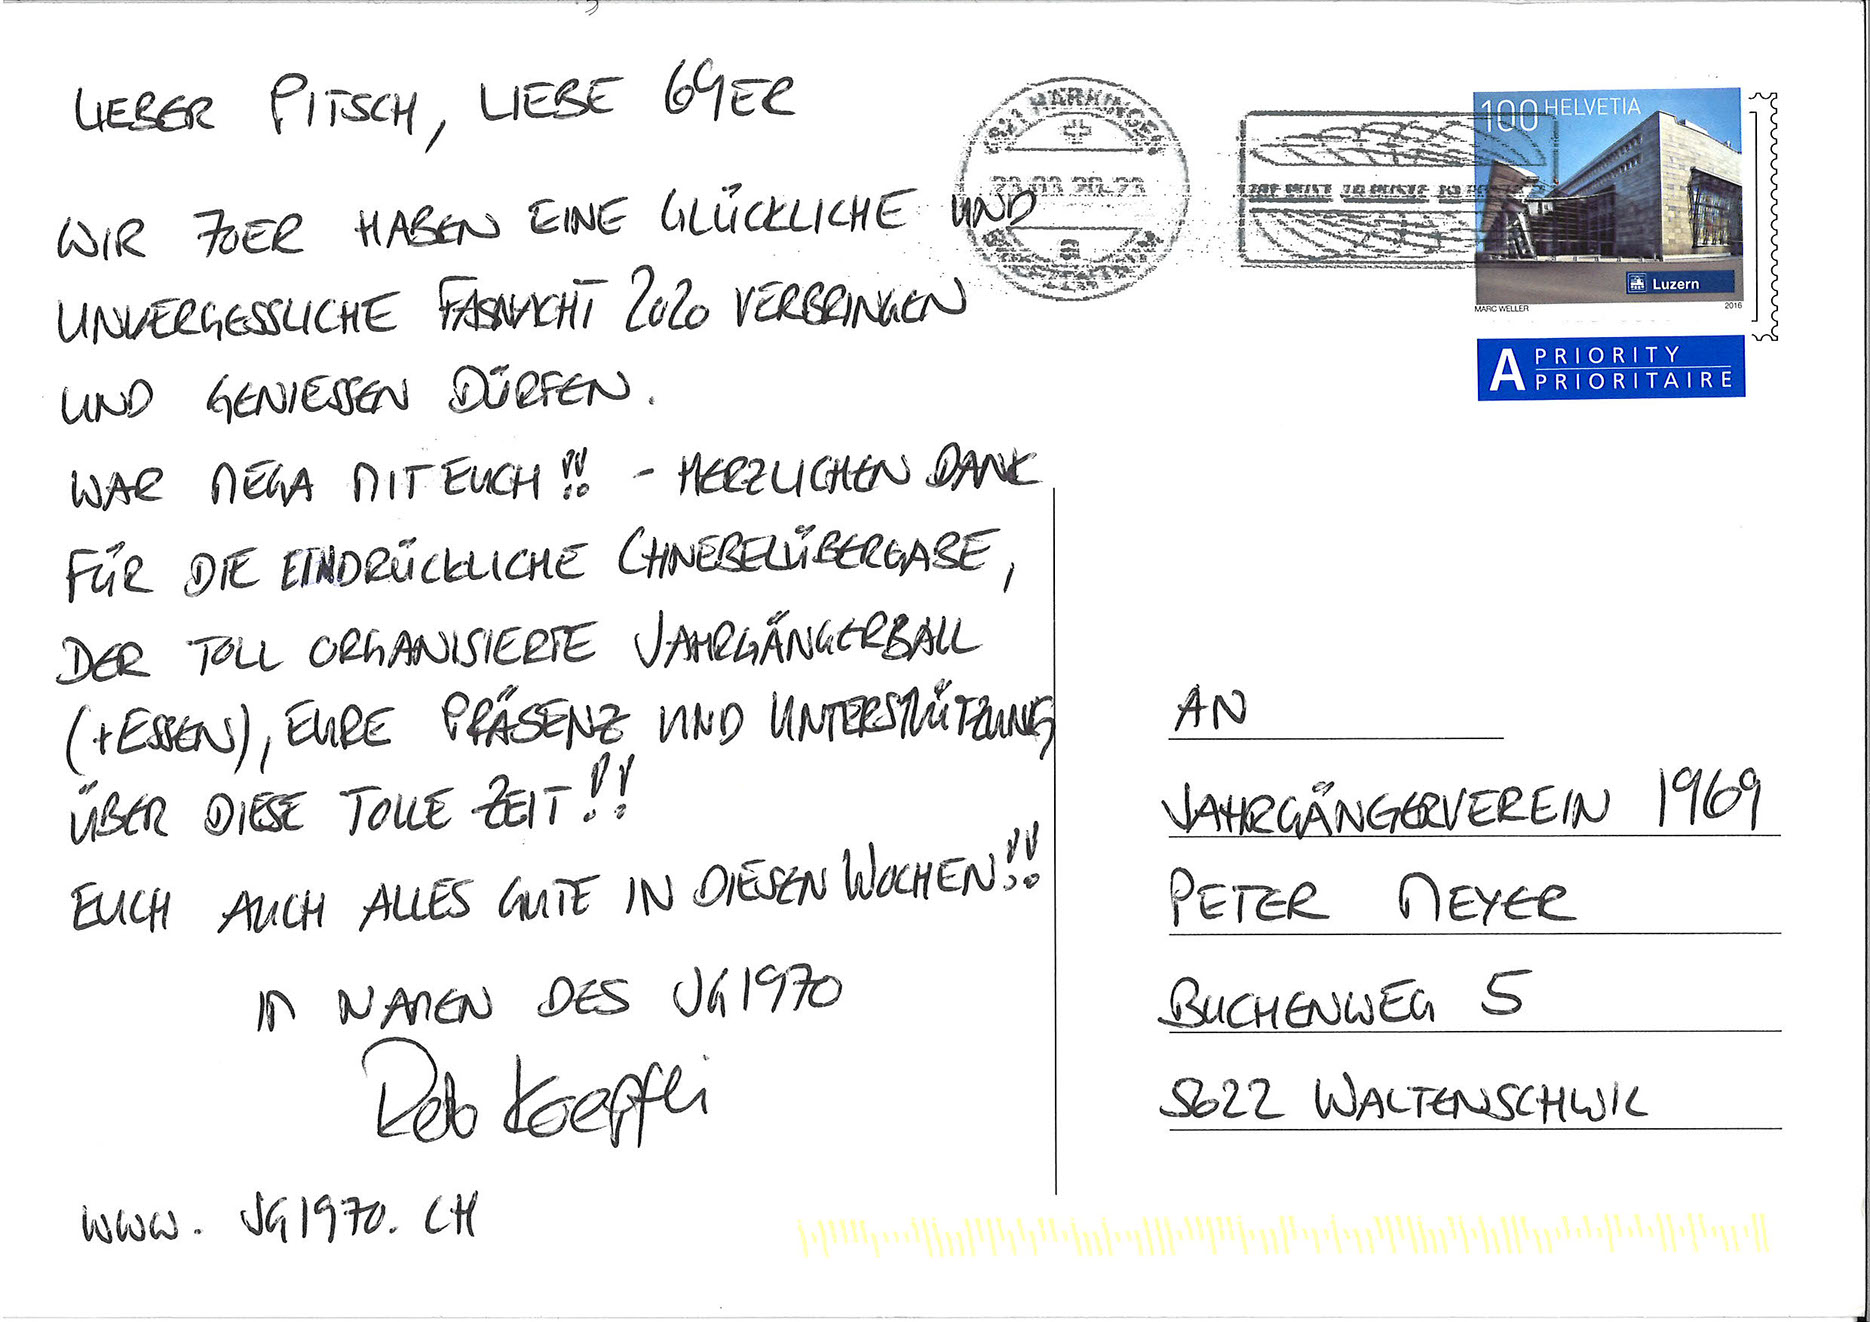 LIEBER PITSCH, LIEBE 69ER
WIR 70ER HABEN EINE GLÜCKLICHE UND
UNVERGESSLICHE FASNACHT 2020 VERBRINGEN
UND GENIESSEN DÜRFEN.
WAR MEGA MIT EUCH!! - HERZLICHEN DANK
FÜR DIE EINDRÜCKLICHE CHNEBELÜBERGABE,
DER TOLL ORGANISIERTE JAHRGÄNGERBALL
(+ESSEN), EURE PRÄSENZ UND UNTERSTÜTZUNG
ÜBER DIESE TOLLE ZEIT!!
EUCH AUCH ALLES GUTE IN DIESEN WOCHEN!!
IM NAMEN DES JG1970
Reto Koepfli
WWW.JG1970.CH
100 HELVETIA
Luzern
MARC WELLER 2016
A PRIORITY
PRIORITAIRE
AN
JAHRGÄNGERVEREIN 1969
PETER MEYER
BUCHENWEG 5
5622 WALTENSCHWIL